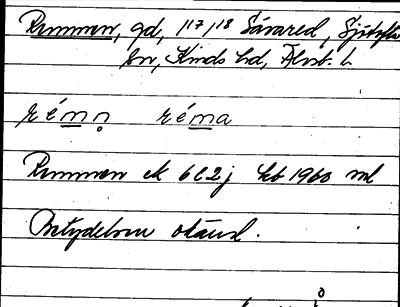 Remmen, gd, 1 17/18 Sävared, Sjötofta
sn, Kinds hd, Älvsb. l.
rémn̥ réma
Remmen ek 6C2j kb 1960 ml
Betydelsen okänd.